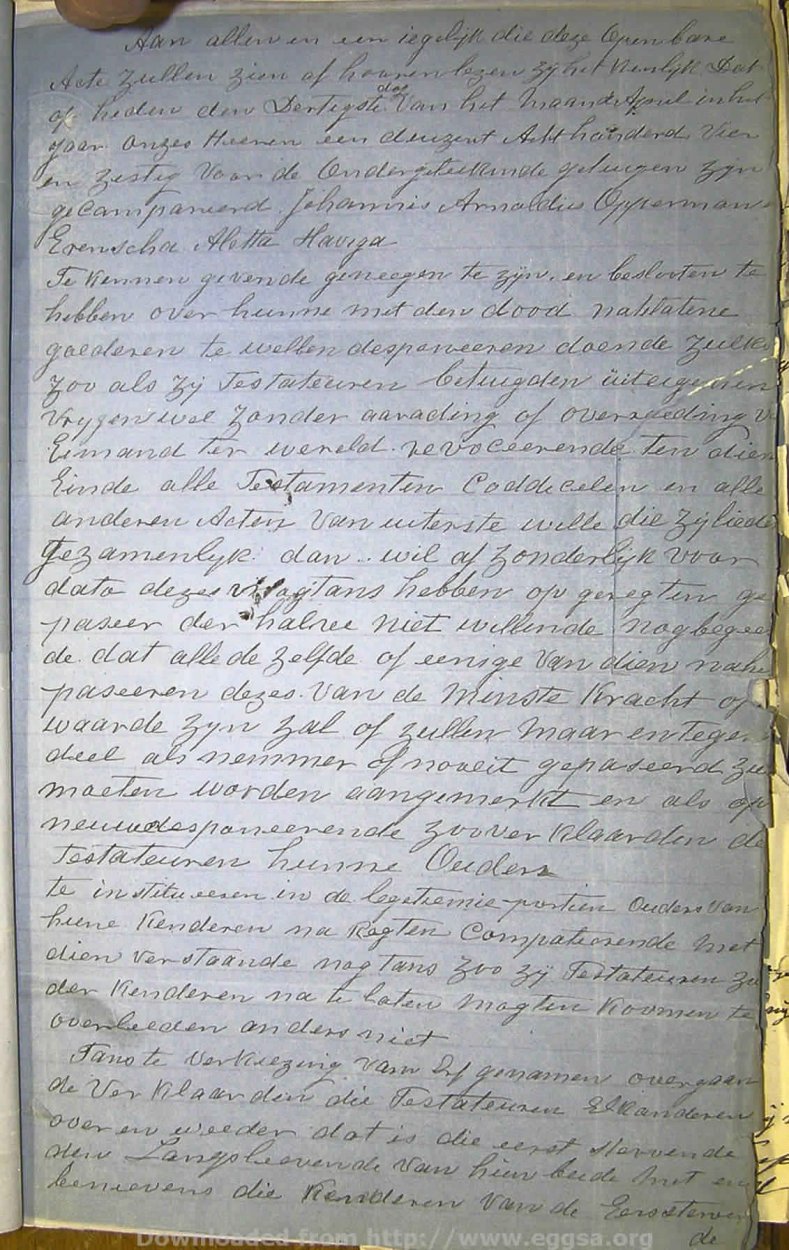 Aan allen en een iegelijk die deze Openbare
Acte Zullen zien of hooren lezen zij het Kenlijk Dat
op heden den Dertigste dag Van het Maand April in het
Jaar Onzes Heeren een duizent Acht honderd Vier
en Zestig Voor de Ondergetekende getuigen zyn
gecampareerd Johannis Arnoldus Opperman
Erenscha Aletta Haviga
Te Kennen gevende geneegen te zijn en beslooten te
hebben over hunne met den dood natelatene
goederen te wellen desponeeren doende Zulks
Zoo als Zij Testateuren betuigden uit eigenen
Vrygen wel Zonder aarading of overreeding
Eimand ter wereld revoceerende ten dien
Einde alle Testamenten Coddecelen en alle
anderen Acten Van uiterste wille die Zy liede
Gezamenlyk dan wil of Zonderlijk voor
dato dezes hebben op geregten ge
paseer der halve niet willende nog begee
de dat alle de Zelfde of eenige Van dien nahe
paseeren dezes Van de Minste Kracht of
waarde Zyn Zal of zullen Maar en tege
deel als nemmer of nooeit gepaseerd zu
moeten worden aangemerkt en als op
neuw desponeerende Zoo ver Klaarden de
Testateuren hunne Ouders
te institueeren in de legetiemie portien Ouders Van
hune Kenderen na Regten Compateerende Met
dien Verstaande nog tans Zoo zij Testateuren Zo
der Kenderen na te laten Mogten Koomen te
overleeden anders niet
Tans te Verkiezing Vam Erf genamen overgaan
de Ver Klaarden die Testateuren Elkanderen
over en weeder dat is die eerst stervende
den Langsleevende Van hun beide Met en
benievens die Kenderen Van de Eerststerven
de
Downloaded from http://www.eggsa.org